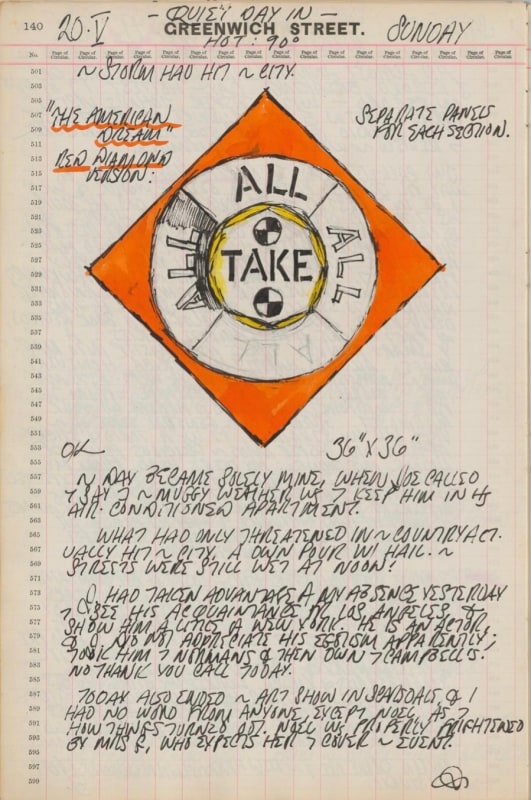 - QUIET DAY IN -
140 20·V GREENWICH STREET. SUNDAY
HOT: 90°
No. Page of Circular. Page of Circular. Page of Circular. Page of Circular. Page of Circular. Page of Circular. Page of Circular. Page of Circular. Page of Circular. Page of Circular. Page of Circular. Page of Circular. Page of Circular. Page of Circular. Page of Circular. Page of Circular. Page of Circular.
~ STORM HAD HIT ~ CITY.
"THE AMERICAN
DREAM"
RED DIAMOND
VERSION:
SEPARATE PANELS
FOR EACH SECTION.
ALL
ALL
ALL
TAKE
ALL
OK
36" X 36"
~ DAY BECAME SOLELY MINE, WHEN JOE CALLED
7 SAY 7 ~ MUGGY WEATHER WD 7 KEEP HIM IN HS
AIR-CONDITIONED APARTMENT.
WHAT HAD ONLY THREATENED IN ~ COUNTRY ACT-
UALLY HIT ~ CITY. A DOWN POUR W/ HAIL. ~
STREETS WERE STILL WET AT NOON!
J. HAD TAKEN ADVANTAGE A MY ABSENCE YESTERDAY
7 SEE HIS ACQUAINTANCE FR LOS ANGELES &
SHOW HIM A LITTLE A NEW YORK. HE IS AN ACTOR
& J. DID NOT APPRECIATE HIS EGOISM APPARENTLY;
TOOK HIM 7 NORMANS & THEN DOWN 7 CAMPBELL'S.
NO THANK YOU CALL TODAY.
TODAY ALSO ENDED ~ ART SHOW IN SCARSDALE & I
HAD NO WORD FROM ANYONE, EXCEPT NOEL AS 7
HOW THINGS TURNED OUT. NOEL WAS PROPERLY FRIGHTENED
BY MRS , WHO EXPECTS HER 7 COVER ~ EVENT.
501
503
505
507
509
511
513
515
517
519
521
523
525
527
529
531
533
535
537
539
541
543
545
547
549
551
553
555
557
559
561
563
565
567
569
571
573
575
577
579
581
583
585
587
589
591
593
595
597
599